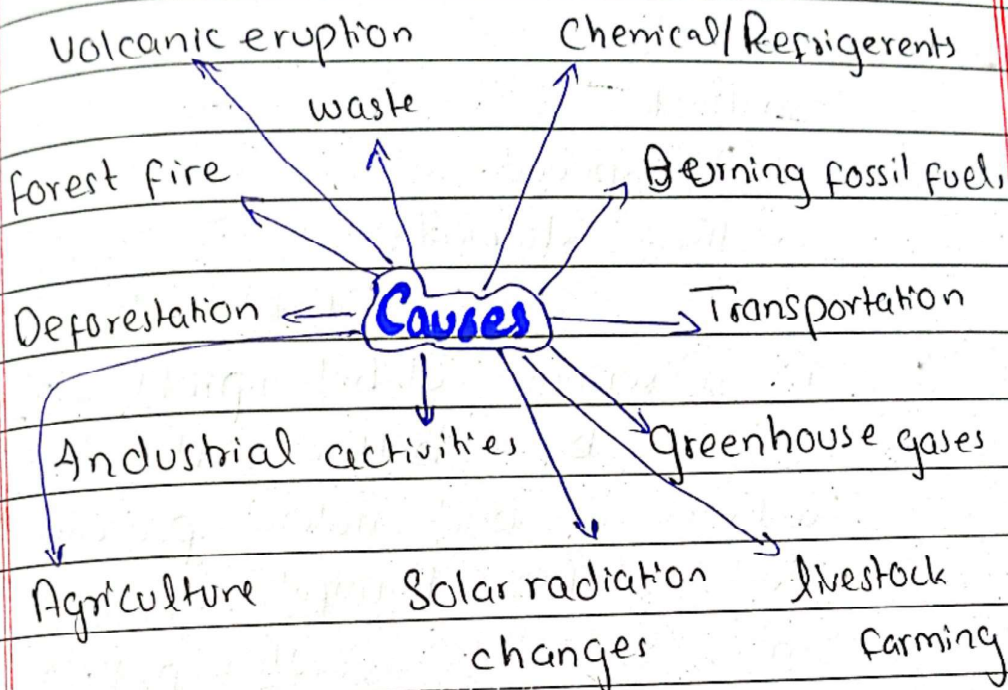 Volcanic eruption
Chemical/Refrigerents
waste
forest fire
Burning fossil fuels
Deforestation
Causes
Transportation
Industrial activities
greenhouse gases
Agriculture
Solar radiation
changes
livestock
farming